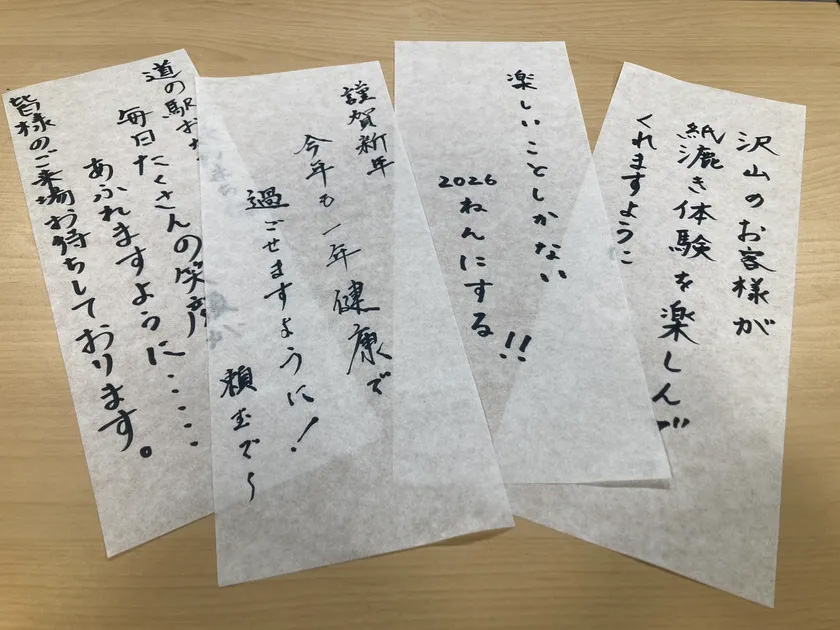 沢山のお客様が
紙漉き体験を楽しんで
くれますように
楽しいことしかない
2026ねんにする!!
謹賀新年
今年も一年健康で
過ごせますように!
頼むで〜
道の駅お
毎日たくさんの笑顔が
あふれますように・・・・・
皆様のご来場お待ちしております。